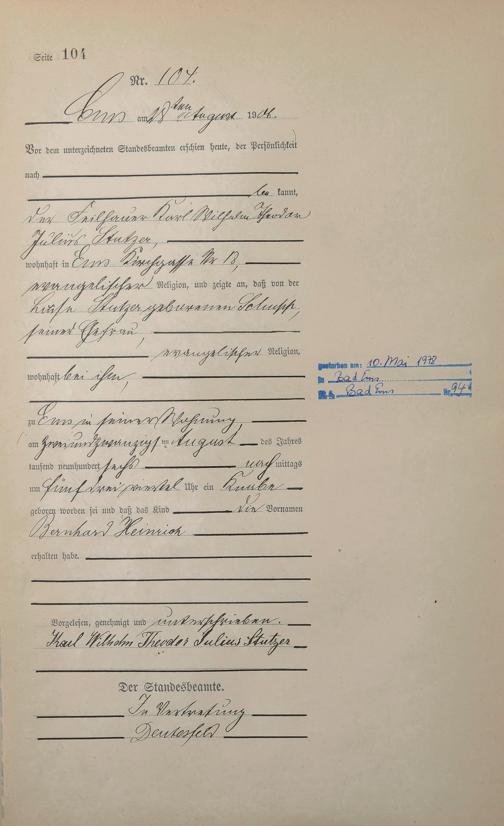 Seite 104
Nr. 104.
Ems am 28ten August 1906.
Vor dem unterzeichneten Standesbeamten erschien heute, der Persönlichkeit
nach
be kannt,
der Feilhauer Karl Wilhelm Theodor
Julius Stutzer,
wohnhaft in Ems Kirchgasse Nr 12,
evangelischer Religion, und zeigte an, daß von der
Luise Stutzer geborenen
seiner Ehefrau,
evangelischer Religion,
wohnhaft bei ihm,
zu Ems in seiner Wohnung,
am zweiundzwanzigsten August des Jahres
tausend neunhundert sechs nach mittags
um fünf drei viertel Uhr ein Knabe
geboren worden sei und daß das Kind die Vornamen
Bernhard Heinrich
erhalten habe.
Vorgelesen, genehmigt und unterschrieben.
Karl Wilhelm Theodor Julius Stutzer
Der Standesbeamte.
In Vertretung
gestorben am: 10. Mai 1978
in Bad Ems
Bad Ems Nr. 94